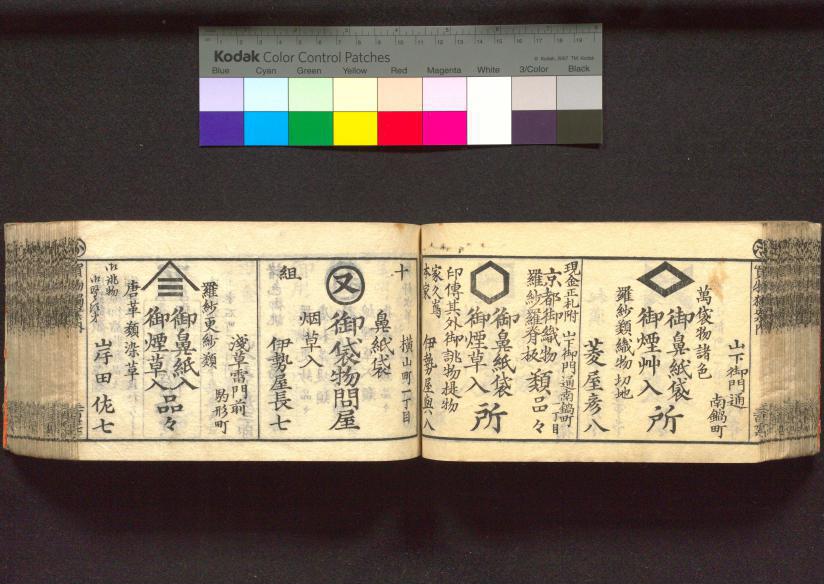 Kodak Color Control Patches
© Kodak, 2007 TM: Kodak
Blue Cyan Green Yellow Red Magenta White 3/Color Black
山下御門通
南鍋町
萬袋物諸色
御鼻紙袋
御煙艸入
所
羅紗類織物切地
菱屋彦八
現金正札附
山下御門通南鍋町
一丁目
京都御織物
羅紗羅脊板
類品々
御鼻紙袋
御煙草入
所
印傳其外御誂物提物
家久嶌
本家
伊勢屋與八
十
組
横山町一丁目
鼻紙袋
又
御袋物問屋
烟草入
伊勢屋長七
淺草雷門前
駒形町
羅紗更紗類
御鼻紙入
御煙草入
品々
唐革類染革
岸田佐七